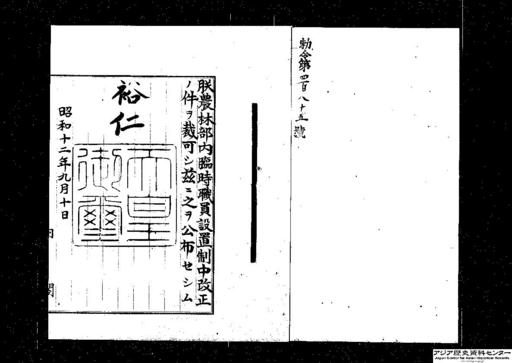 勅令第四百八十五號
朕農林部內臨時職員設置制中改正
ノ件ヲ裁可シ茲ニ之ヲ公布セシム
裕仁
天皇御璽
昭和十二年九月十日
アジア歴史資料センター
Japan Center for Asian Historical Records